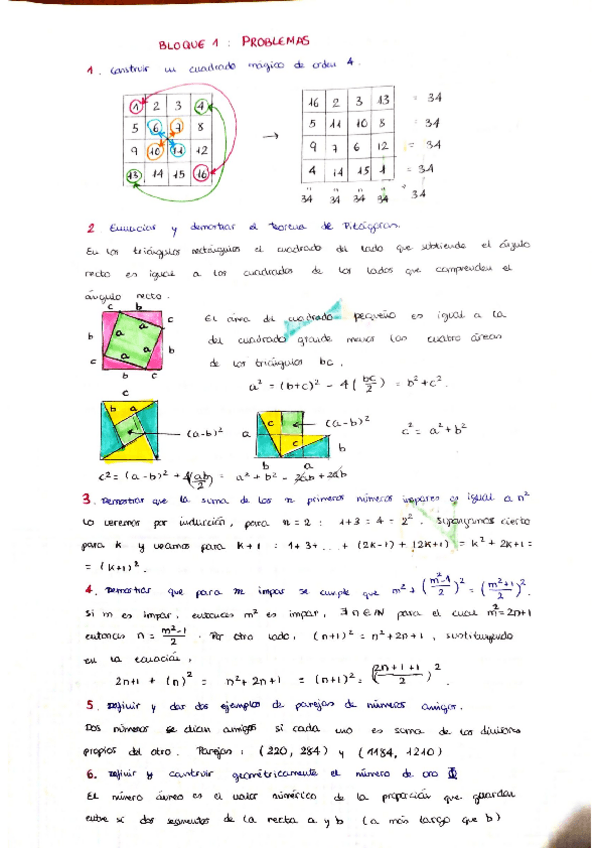 BLOQUE 1 : PROBLEMAS
1. Construir un cuadrado mágico de orden 4.
1 2 3 4 16 2 3 13 = 34
5 6 7 8 → 5 11 10 8 = 34
9 10 11 12 9 7 6 12 = 34
13 14 15 16 4 14 15 1 = 34
34 34 34 34 34
2 Enunciar y demostrar el teorema de Pitágoras.
En los triángulos rectángulos el cuadrado del lado que subtiende el ángulo
recto es igual a los cuadrados de los lados que comprenden el
ángulo recto.
c b
b a a c
c a a b
b c
El área del cuadrado pequeño es igual a la
del cuadrado grande menos las cuatro áreas
de los triángulos bc.
a² = (b+c)² - 4(bc/2) = b²+c².
c
b a
(a-b)²
a c c b
b a
(a-b)²
c² = a²+b²
c² = (a-b)² + 4(ab/2) = a²+b² - 2ab + 2ab
3. Demostrar que la suma de los n primeros números impares es igual a n²
Lo veremos por inducción, para n=2 : 1+3 = 4 = 2². Supongamos cierto
para k y veamos para k+1 : 1+3+...+(2k-1)+(2k+1) = k²+2k+1 =
= (k+1)².
4. Demostrar que para m impar se cumple que m² + (m²-1/2)² = (m²+1/2)².
Si m es impar, entonces m² es impar, ∃ n∈ℕ para el cual m²=2n+1
entonces n = m²-1/2 . Por otro lado, (n+1)² = n²+2n+1, sustituyendo
en la ecuación,
2n+1 + (n)² = n²+2n+1 = (n+1)² = (2n+1+1/2)².
5. Definir y dar dos ejemplos de parejas de números amigos.
Dos números se dicen amigos si cada uno es suma de los divisores
propios del otro. Parejas : (220, 284) y (1184, 1210)
6. Definir y construir geométricamente el número de oro Φ
El número áureo es el valor numérico de la proporción que guardan
entre sí dos segmentos de la recta a y b (a más largo que b)